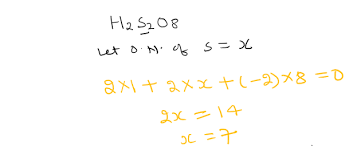 H2S2O8
Let O.N. of S = x
2x1 + 2xx + (-2)x8 = 0
2x = 14
x = 7